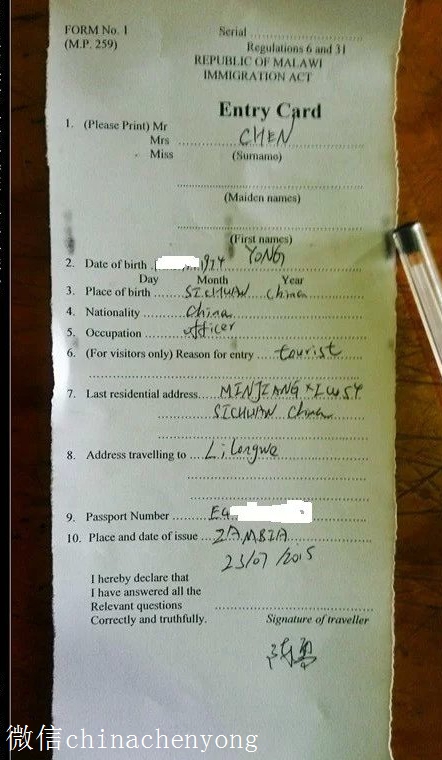 FORM No. 1
(M.P. 259)
Serial
Regulations 6 and 31
REPUBLIC OF MALAWI
IMMIGRATION ACT
Entry Card
1. (Please Print) Mr
Mrs
Miss
CHEN
(Surname)
(Maiden names)
(First names)
YONG
2. Date of birth 1974
Day Month Year
3. Place of birth SICHUAN China
4. Nationality China
5. Occupation officer
6. (For visitors only) Reason for entry tourist
7. Last residential address MINJIANG
SICHUAN China
8. Address travelling to Lilongwe
9. Passport Number E4
10. Place and date of issue ZAMBIA
23/07/2015
I hereby declare that
I have answered all the
Relevant questions
Correctly and truthfully.
Signature of traveller
陈勇
微信chinachenyong